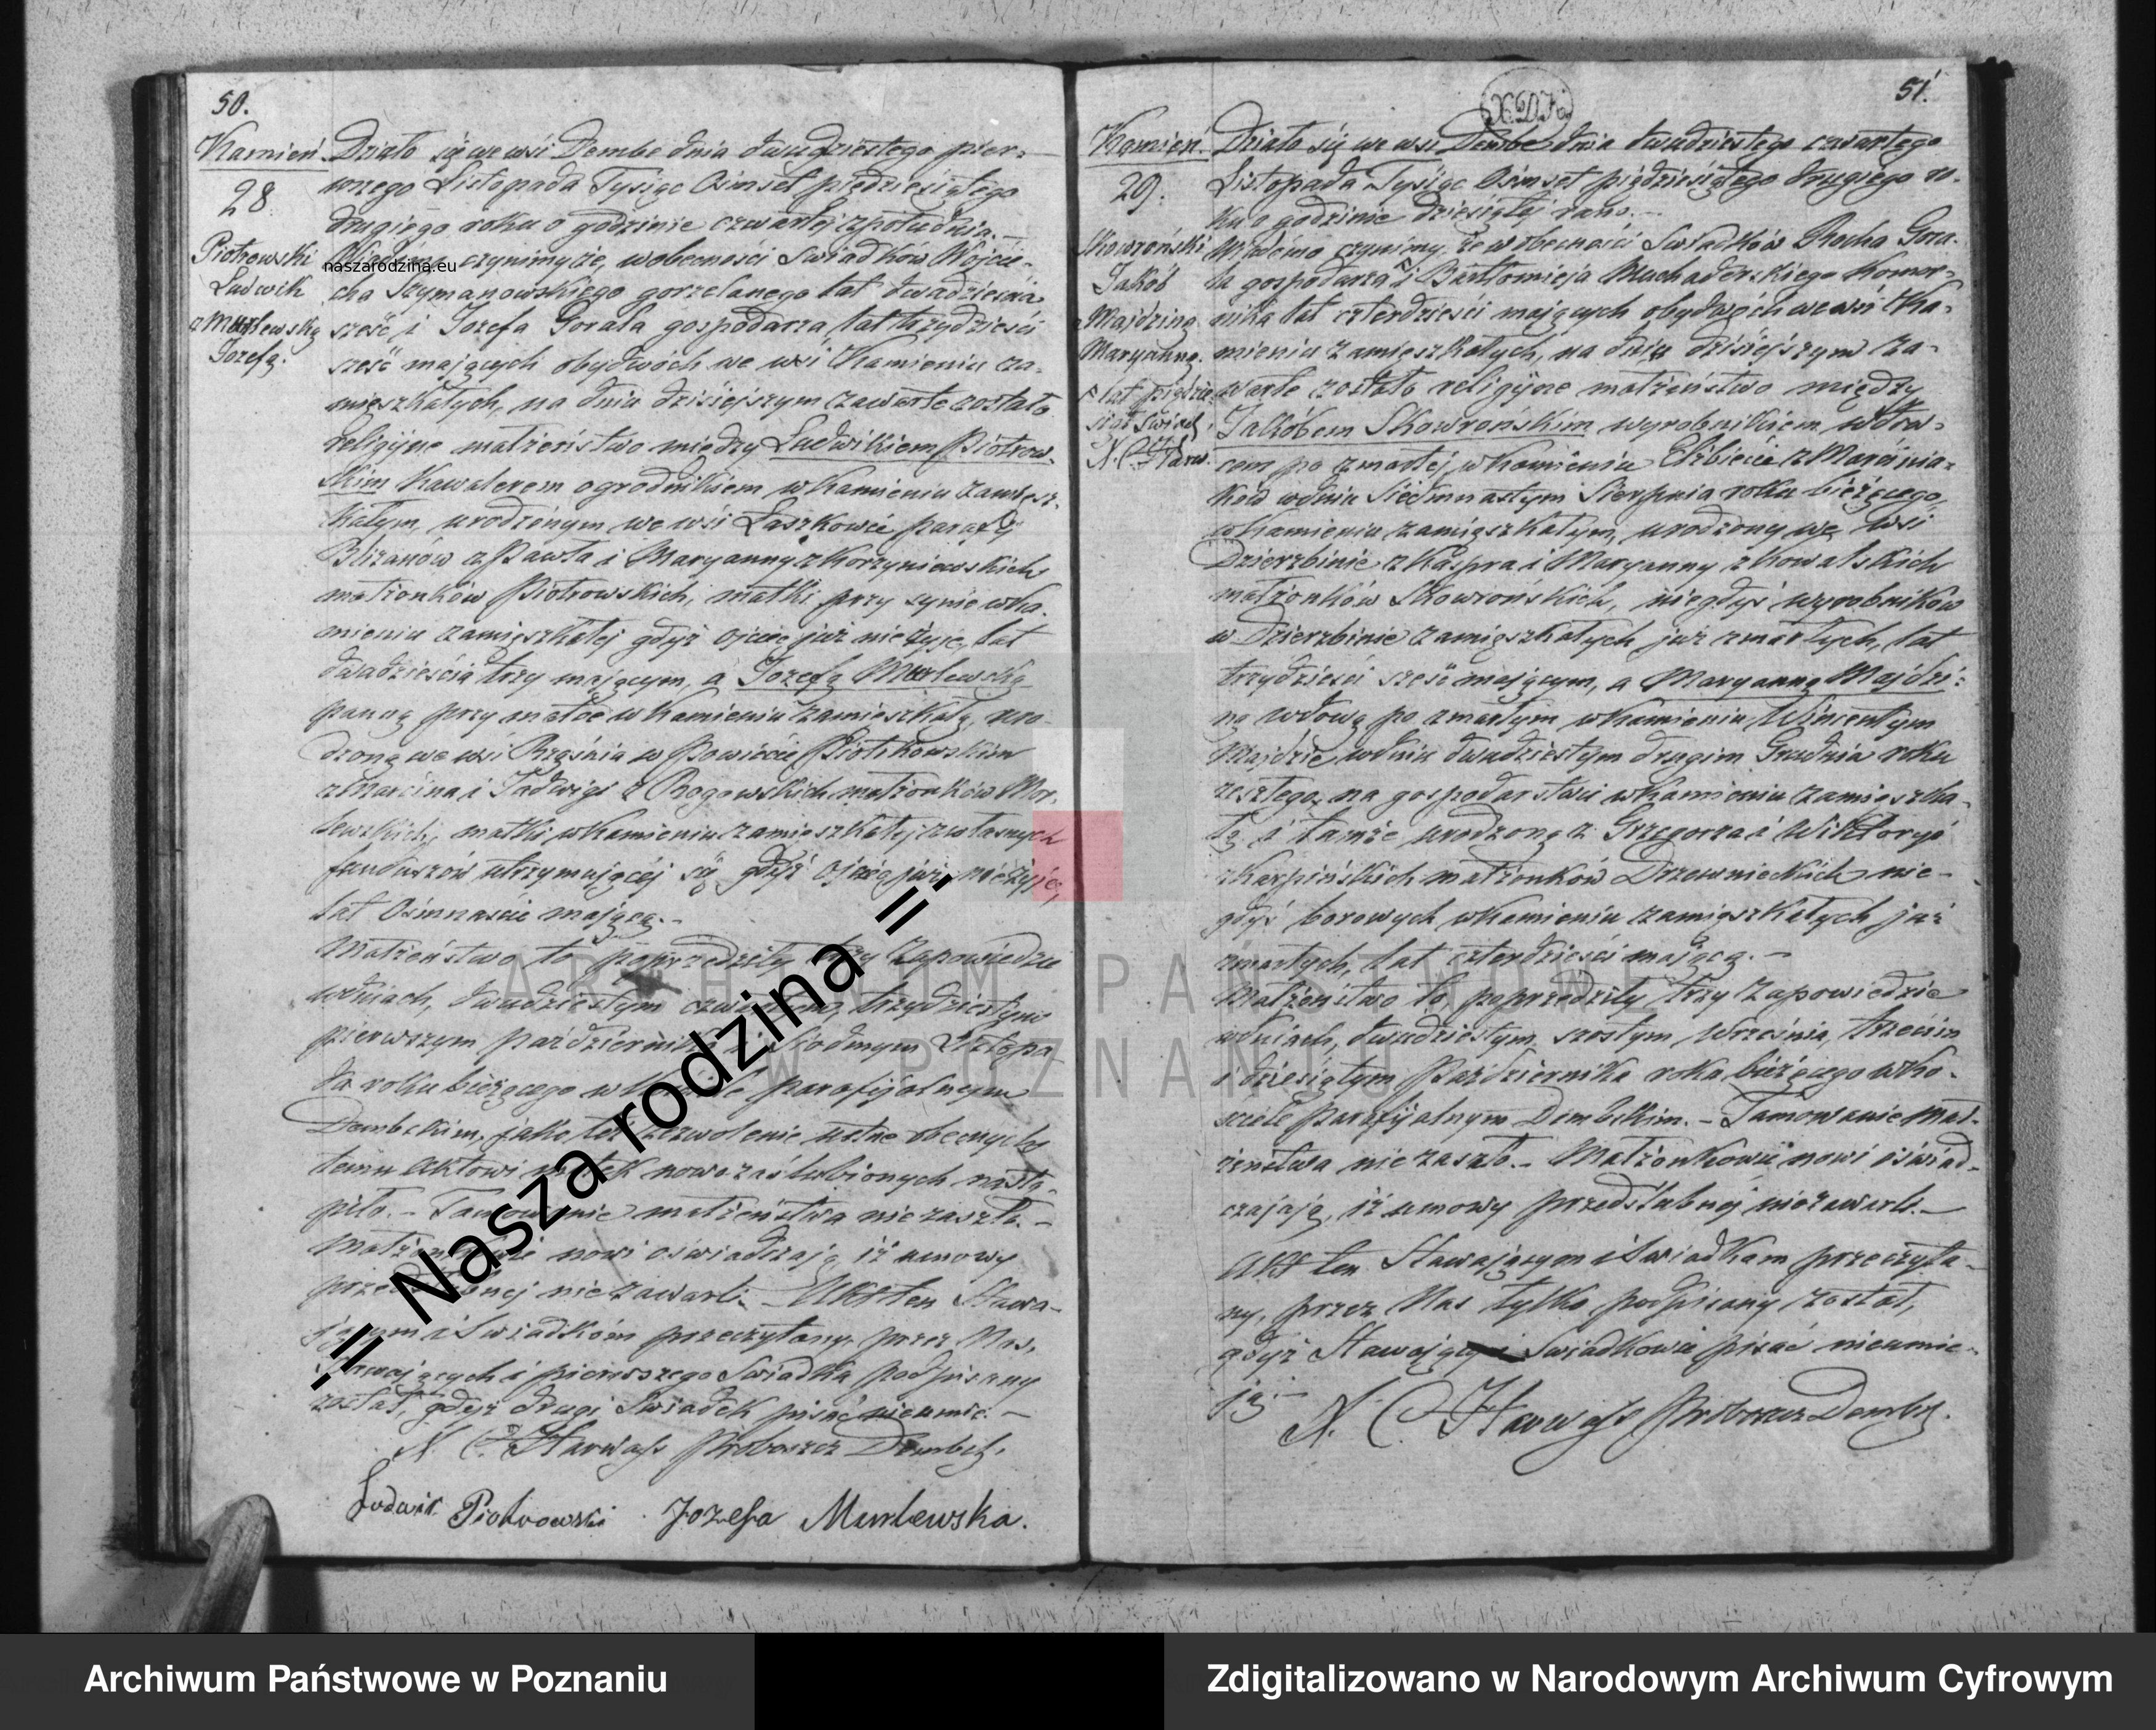 50.
Kamień.
28
Piotrowski
Ludwik
z Murlewską
Jozefą.
Działo się we wsi Dembe dnia dwudziestego pier-
wszego Listopada Tysiąc Ośmset pięćdziesiątego
drugiego roku o godzinie czwartej z południa.
Wiadomo czynimy że, w obecności Swiadków Wojcie-
cha Szymanowskiego gorzelanego lat dwadzieścia
sześć i Jozefa Gorala gospodarza lat trzydzieści
sześć mających obydwóch we wsi Kamieniu za-
mięszkałych, na dniu dzisiejszym zawarte zostało
religijne małżeństwo między Ludwikiem Piotrow-
skim Kawalerem ogrodnikiem w Kamieniu zamięsz-
kałym, urodzonym we wsi Laszkowie parafij
Blizanów z Pawła i Maryanny z Korzyniewskich
małżonków Piotrowskich, matki przy synie w Ka-
mieniu zamięszkałej gdyż ojciec już nie żyje, lat
dwadzieścia trzy mającym, a Jozefą Murlewską
panną przy matce w Kamieniu zamieszkałą, uro-
dzoną we wsi Rząśnia w Powiecie Piotrkowskim
z Marcina i Jadwigi z Rogowskich małżonków Mor-
lewskich, matki w Kamieniu zamięszkałej z własnych
funduszów utrzymującej się gdyż ojciec już nie żyje,
lat Ośmnaście mającą.-
Małżeństwo to poprzedziły trzy Zapowiedzie
w dniach, dwudziestym czwartym, trzydziestym
pierwszym października i Siódmym Listopa-
da roku bieżącego w Kościele parafijalnym
Dembskim, jako też zezwolenie ustne obecnych
temu Aktowi matek nowozaślubionych nastą-
piło. - Tamowanie małżeństwa nie zaszło. -
Małżonkowie nowi oświadczają iż umowy
przedślubnej nie zawarli. - Akt ten Stawa-
jącym i Swiadkom przeczytany, przez Nas,
Stawających i pierwszego Swiadka podpisany
został, gdyż drugi Swiadek pisać nieumie. -
X. C. Harwass Proboszcz Dembsk.
Ludwik Piotrowski Jozefa Murlewska.
51.
Kamień.
29.
Skowroński
Jakób
z Majdziną
Maryanną.
Działo się we wsi Dembe dnia dwudziestego czwartego
Listopada Tysiąc Ośmset pięćdziesiątego drugiego ro-
ku o godzinie dziesiątej rano. -
Wiadomo czynimy, że w obecności Swiadków Rocha Gora-
la gospodarza i Bartłomieja Muchaderskiego Komor-
nika lat czterdzieści mających obydwóch we wsi Ka-
mieniu zamięszkałych, na dniu dzisiejszym za-
warte zostało religijne małżeństwo między
Jakóbem Skowrońskim wyrobnikiem wdow-
cem po zmarłej w Kamieniu Elżbiecie z Marcinia-
ków w dniu Siedmnastym Sierpnia roku bieżącego,
w Kamieniu zamięszkałym, urodzony we wsi
Dzierzbinie z Kaspra i Maryanny z Kowalskich
małżonków Skowrońskich, niegdyś wyrobników
w Dzierzbinie zamięszkałych już zmarłych, lat
trzydzieści sześć mającym, a Maryanną Majdzi-
ną wdową po zmarłym w Kamieniu Wincentym
Majdzie w dniu dwudziestym drugim Grudnia roku
zeszłego, na gospodarstwie w Kamieniu zamieszka-
łą i tamże urodzoną z Grzegorza i Wiktoryi
z Karpińskich małżonków Drzewnieckich nie-
gdyś borowych w Kamieniu zamięszkałych już
zmarłych, lat czterdzieści mającą. -
Małżeństwo to poprzedziły trzy Zapowiedzie
w dniach, dwudziestym szóstym Września, trzecim
i dziesiątym Października roku bieżącego w Ko-
ściele Parafijalnym Dembskim. - Tamowanie mał-
żeństwa nie zaszło. - Małżonkowie nowi oświad-
czajają, iż umowy przedślubnej nie zawarli. -
Akt ten Stawającym i Swiadkom przeczyta-
ny, przez Nas tylko podpisany został,
gdyż Stawający i Swiadkowie pisać nieumie-
ją. -
X. C. Harwass Proboszcz Dembsk.
naszarodzina.eu
= Nasza rodzina =
ARCHIWUM PAŃSTWOWE
W POZNANIU
Archiwum Państwowe w Poznaniu
Zdigitalizowano w Narodowym Archiwum Cyfrowym